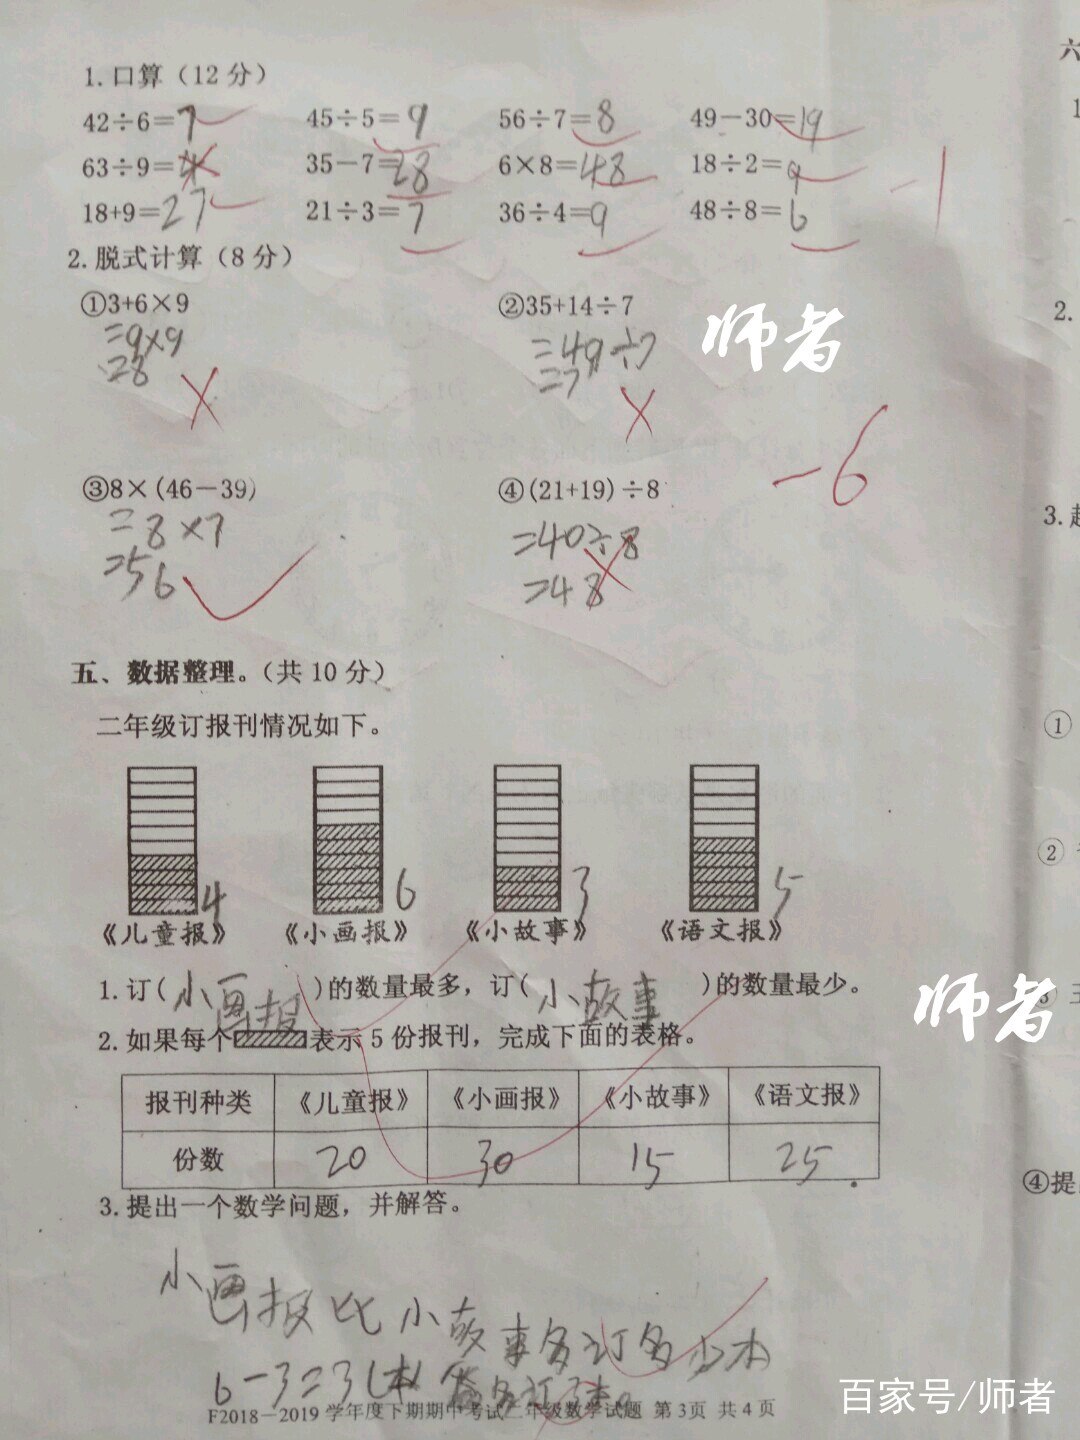 1.口算（12分）
42÷6=7 45÷5=9 56÷7=8 49－30=19
63÷9= 35－7=28 6×8=48 18÷2=9
18+9=27 21÷3=7 36÷4=9 48÷8=6
-1
2.脱式计算（8分）
①3+6×9 ②35+14÷7
=9×9 =49÷7
=28 =7
师者
-6
③8×(46－39) ④(21+19)÷8
=8×7 =40÷8
=56 =48
五、数据整理。（共10分）
二年级订报刊情况如下。
4 6 3 5
《儿童报》 《小画报》 《小故事》 《语文报》
1.订(小画报)的数量最多，订(小故事)的数量最少。
2.如果每个 表示5份报刊，完成下面的表格。
报刊种类 《儿童报》 《小画报》 《小故事》 《语文报》
份数 20 30 15 25
3.提出一个数学问题，并解答。
小画报比小故事多订多少本
6-3=3(本) 答多订3本。
F2018－2019学年度下期期中考试二年级数学试题 第3页 共4页
六
1
2.
3.
①
②
③
④提
师者
百家号/师者